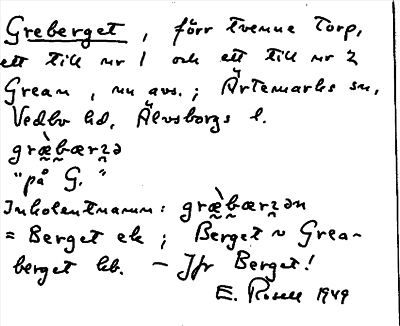 Greberget, förr tvenne torp,
ett till nr 1 och ett till nr 2
Grean, nu avs.; Ärtemarks sn,
Vedbo hd, Älvsborgs l.
græ̀bærʒə
"på G."
Inkolentnamn: græ̀bærʒən
= Berget ek; Berget ~ Grea-
berget kb. — Jfr Berget!
E. Rosell 1949